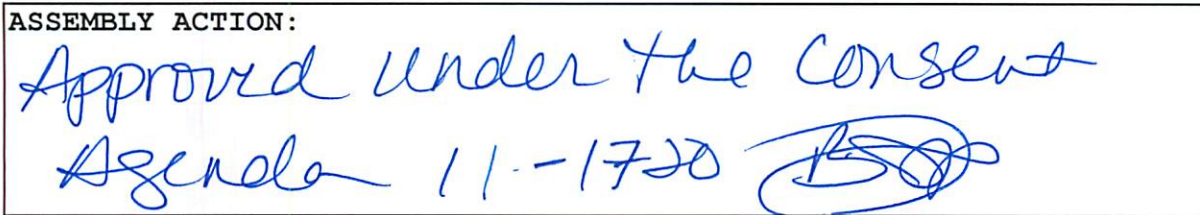 ASSEMBLY ACTION:
Approved under the Consent
Agenda 11-17-20